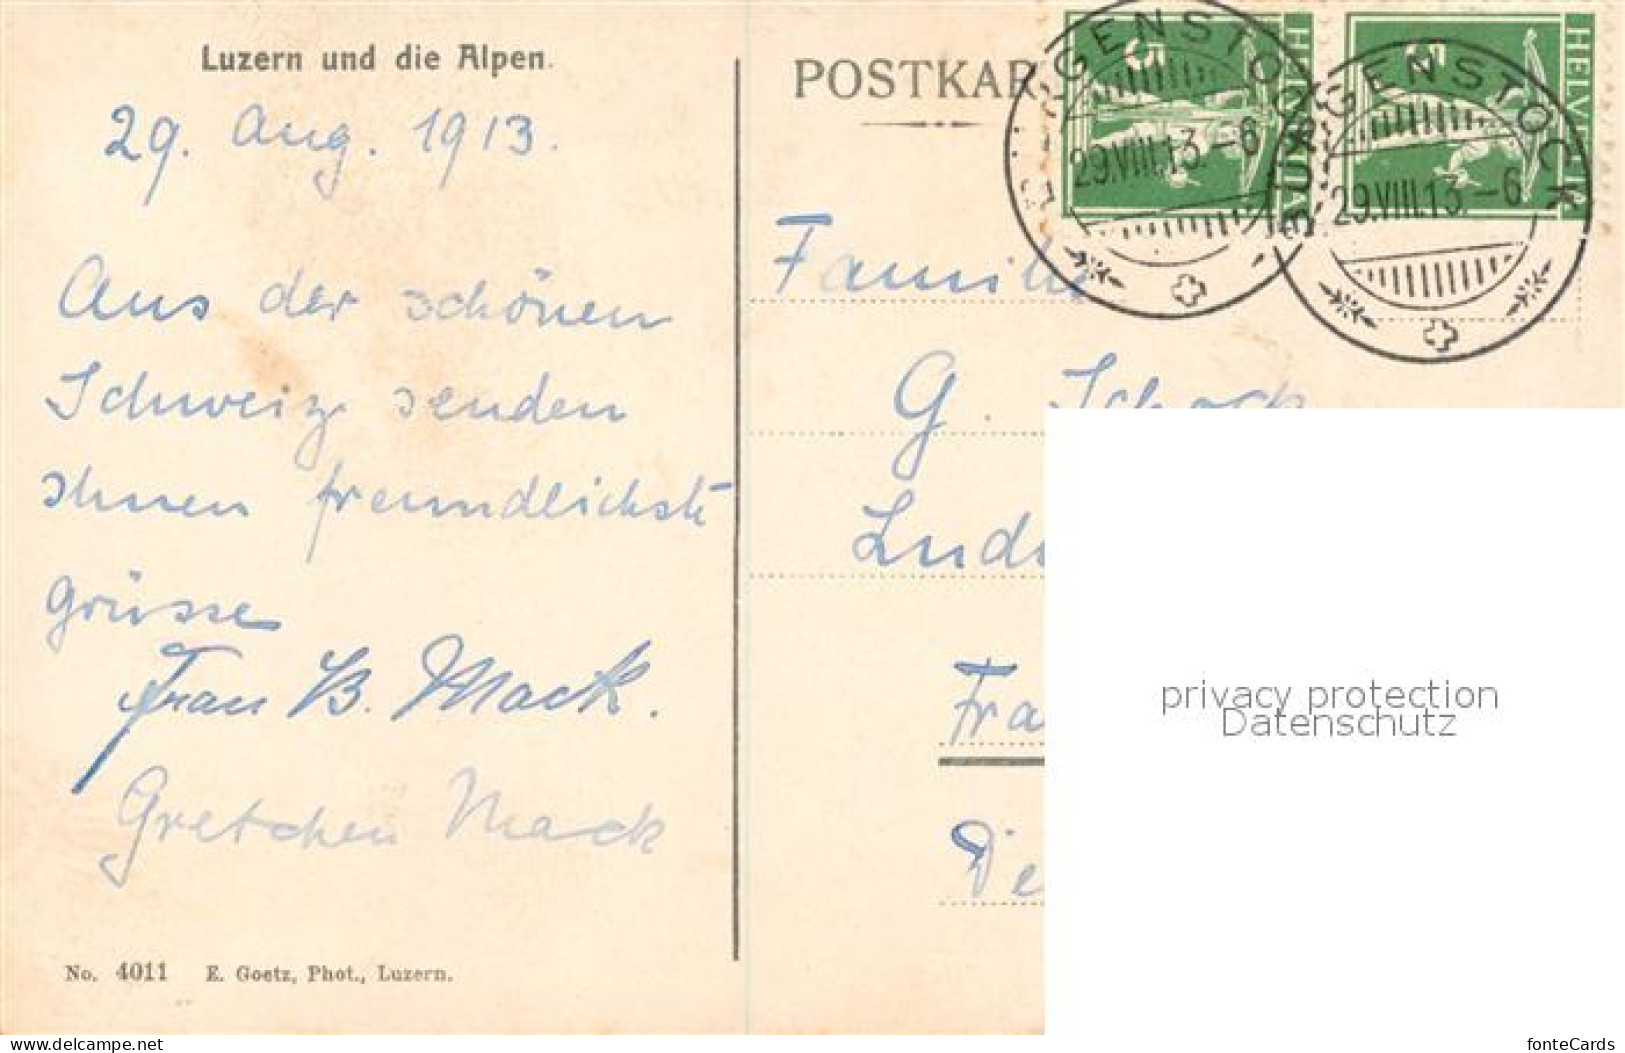 Luzern und die Alpen.
29. Aug. 1913.
Aus der schönen
Schweiz senden
Ihnen freundlichste
Grüsse
Frau B. Mack.
Gretchen Mack
No. 4011 E. Goetz, Phot., Luzern.
POSTKAR
5
HELVETIA
5
HELVETIA
BÜRGENSTOCK
29.VIII.13.-6
BÜRGENSTOCK
29.VIII.13.-6
Familie
G. Schock
Lud
Fra
De
privacy protection
Datenschutz
www.delcampe.net
fonteCards